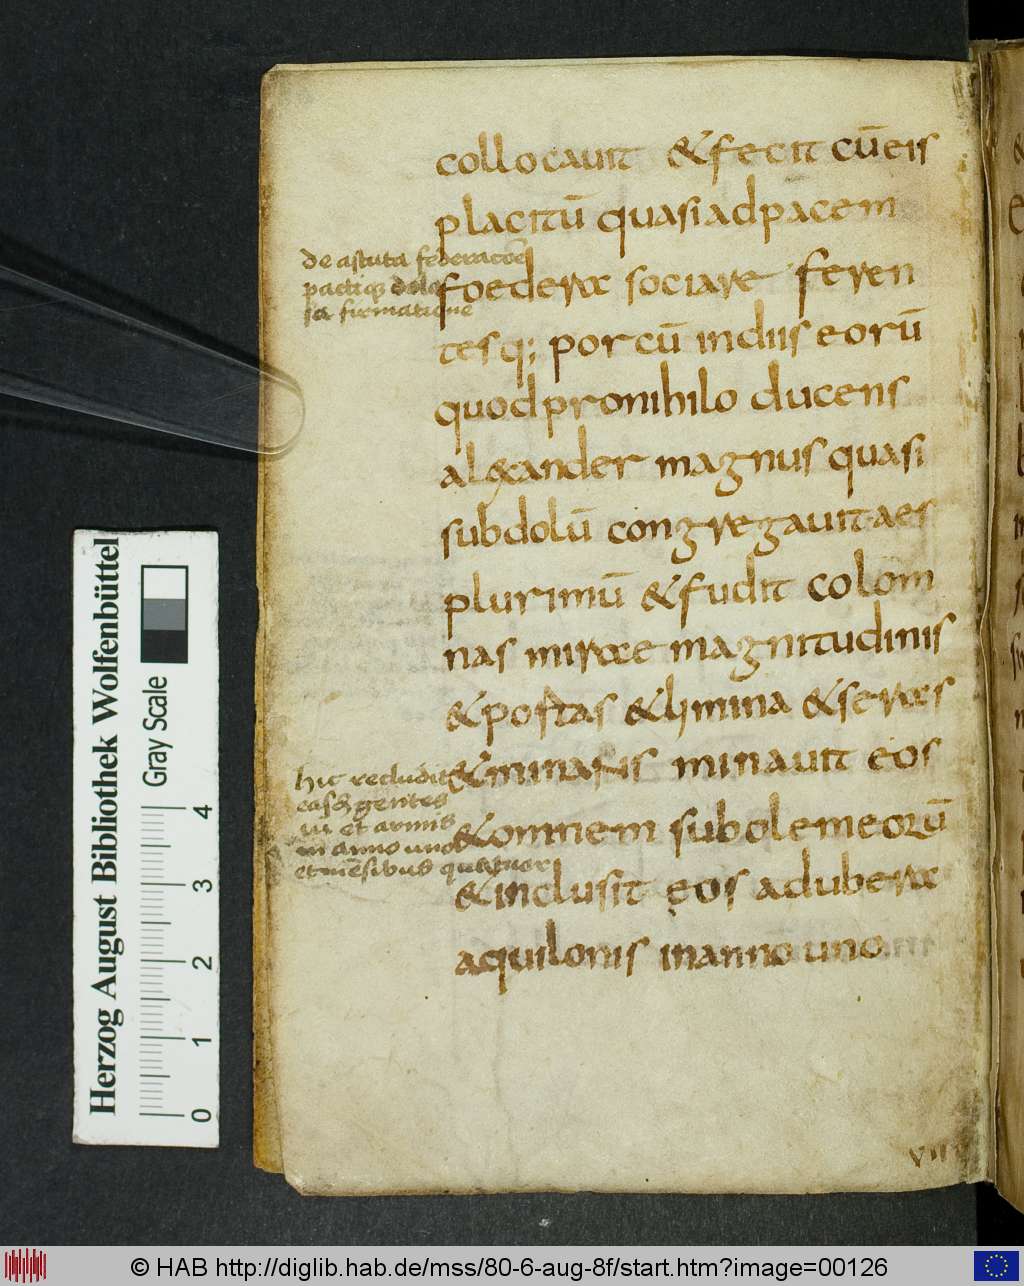 collocauit & fecit cū eis
placitū quasi ad pacem
de astuta federacōe
pactiq; dolo
sa firmatione
foedera sociare feren
tesq; porcū in diis eorū
quod pro nihilo ducens
alexander magnus quasi
subdolū congregauit aes
plurimū & fudit colom
nas mirae magnitudinis
& postas & limina & seras
& minans minauit eos
hic recludit
gentes
et armis
in anno uno
et mēsibus quatuor
& omnem subolem eorū
& inclusit eos ad ubera
aquilonis in anno uno
VII
Herzog August Bibliothek Wolfenbüttel
Gray Scale
0 1 2 3 4
© HAB http://diglib.hab.de/mss/80-6-aug-8f/start.htm?image=00126